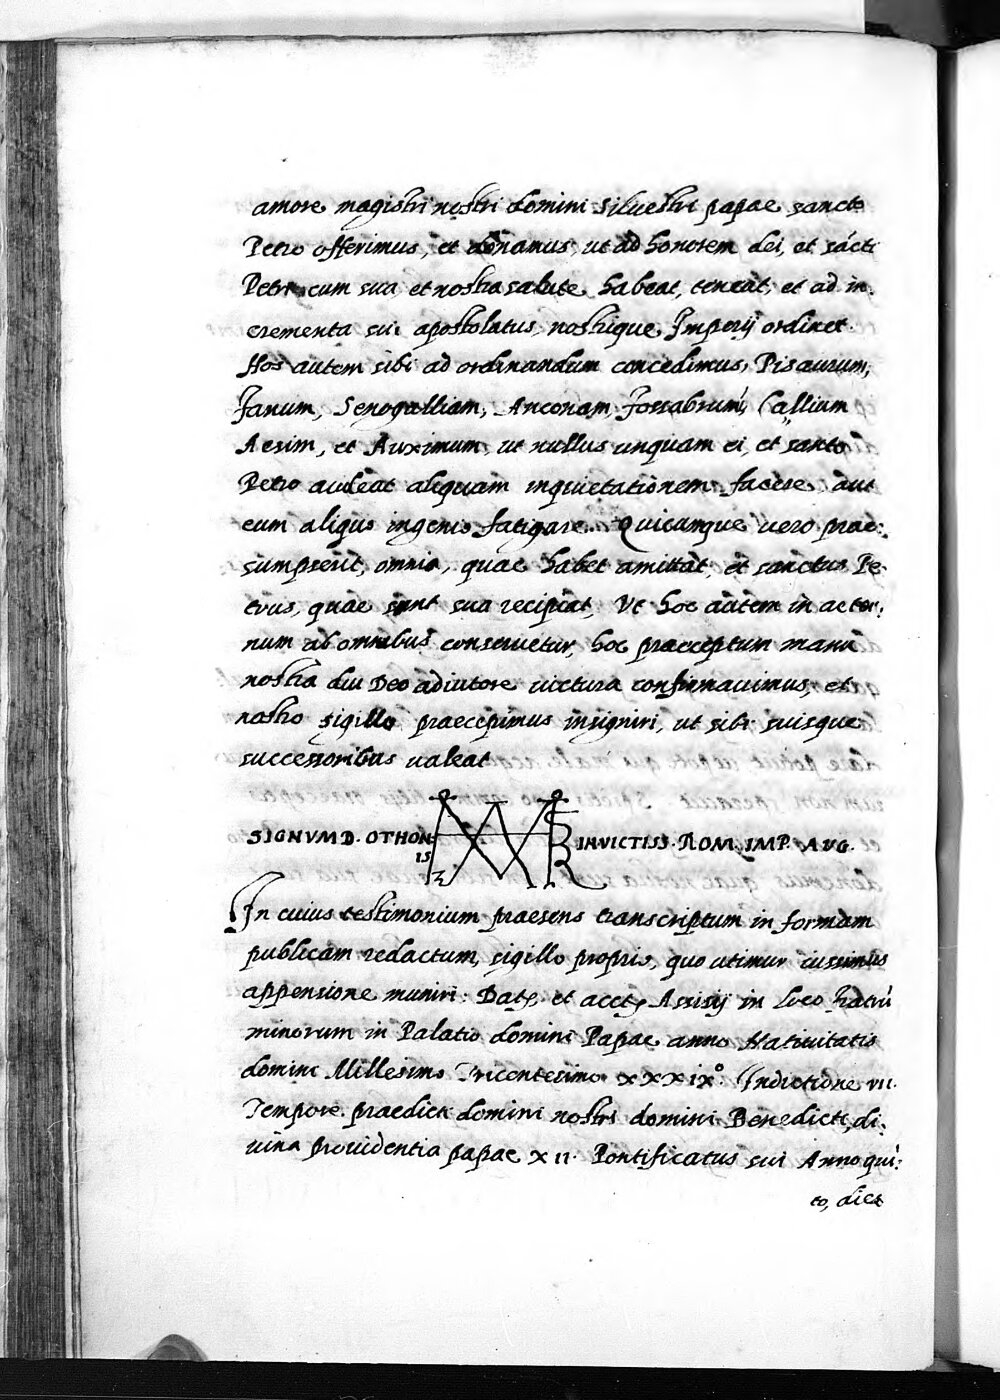 amore magistri nostri domini Siluestri papae sancto
Petro offerimus, et donamus, ut ad honorem dei, et sācti
Petri cum sua et nostra salute habeat, teneat, et ad in:
crementa sui apostolatus, nostrique Imperij ordinet.
Hos autem sibi ad ordinandum concedimus, Pisaurum,
Fanum, Senogalliam, Anconam, Fossabrum, Callium
Aesim, et Auximum, ut nullus unquam ei, et sancto
Petro audeat aliquam inquietationem facere, aut
eum aliquo ingenio fatigare. Quicunque vero prae:
sumpserit, omnia, quae habet amittat, et sanctus Pe:
trus, quae sunt sua recipiat, Ut hoc autem in aeter:
num ab omnibus conseruetur, hoc praeceptum manu
nostra diu Deo adiutore uictura confirmauimus, et
nostro sigillo praecepimus insigniri, ut sibi suisque
successoribus ualeat
SIGNVM D. OTHON
IS
INVICTISS. ROM. IMP. AVG.
In cuius testimonium praesens transcriptum in formam
publicam redactum, sigillo proprio, quo utimur iussimus
appensione muniri: Dat, et acct, Assisij in loco fratrū
minorum in Palatio domini Papae anno Natiuitatis
domini Millesimo Tricentesimo xxxixº. Indictione vii.
Tempore praedicti domini nostri domini Benedicti, di:
uina prouidentia papae xii. Pontificatus sui Anno quī:
to, dies